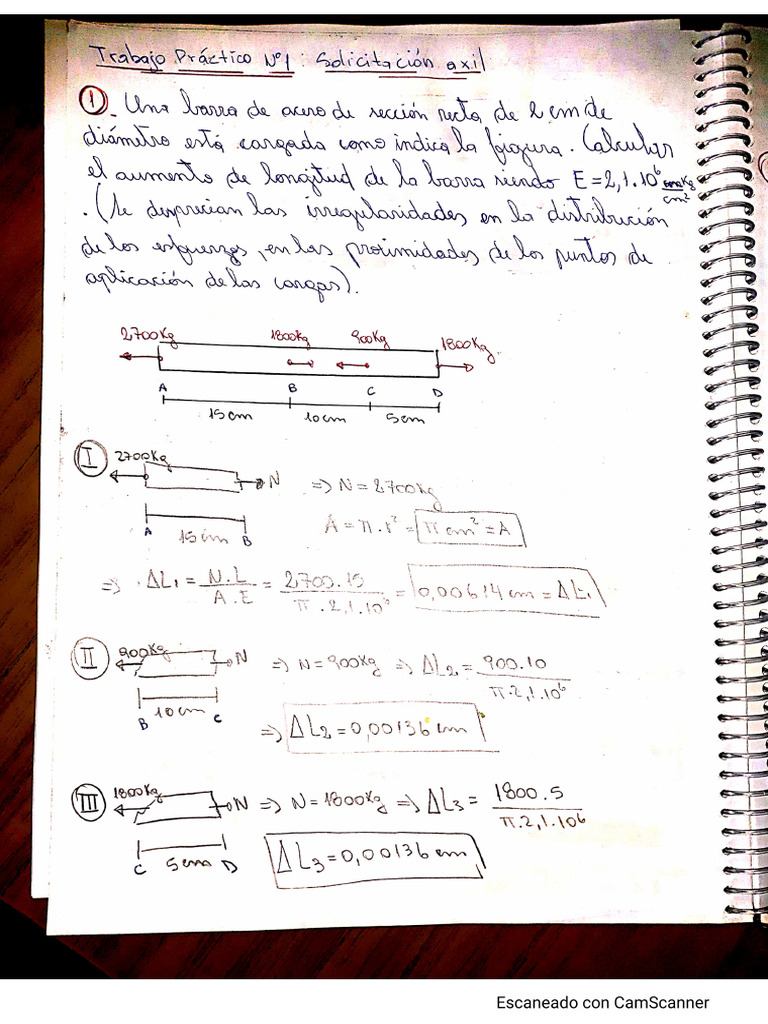 Trabajo Práctico Nº1: Solicitación axil
① Una barra de acero de sección recta de 2 cm de
diámetro está cargada como indica la figura. Calcular
el aumento de longitud de la barra siendo E = 2,1.10⁶ Kg/cm²
. (Se desprecian las irregularidades en la distribución
de los esfuerzos, en las proximidades de los puntos de
aplicación de las cargas).
2700Kg 1800Kg 900Kg 1800Kg
A B C D
15cm 10cm 5cm
I 2700Kg N ⇒ N = 2700Kg
A = π.r² = π cm² = A
A 15cm B
⇒ ΔL₁ = N.L / A.E = 2700.15 / π.2,1.10⁶ = 0,00614 cm = ΔL₁
II 900Kg N ⇒ N = 900Kg ⇒ ΔL₂ = 900.10 / π.2,1.10⁶
B 10cm C
⇒ ΔL₂ = 0,00136 cm
III 1800Kg N ⇒ N = 1800Kg ⇒ ΔL₃ = 1800.5 / π.2,1.10⁶
C 5cm D
ΔL₃ = 0,00136 cm
Escaneado con CamScanner